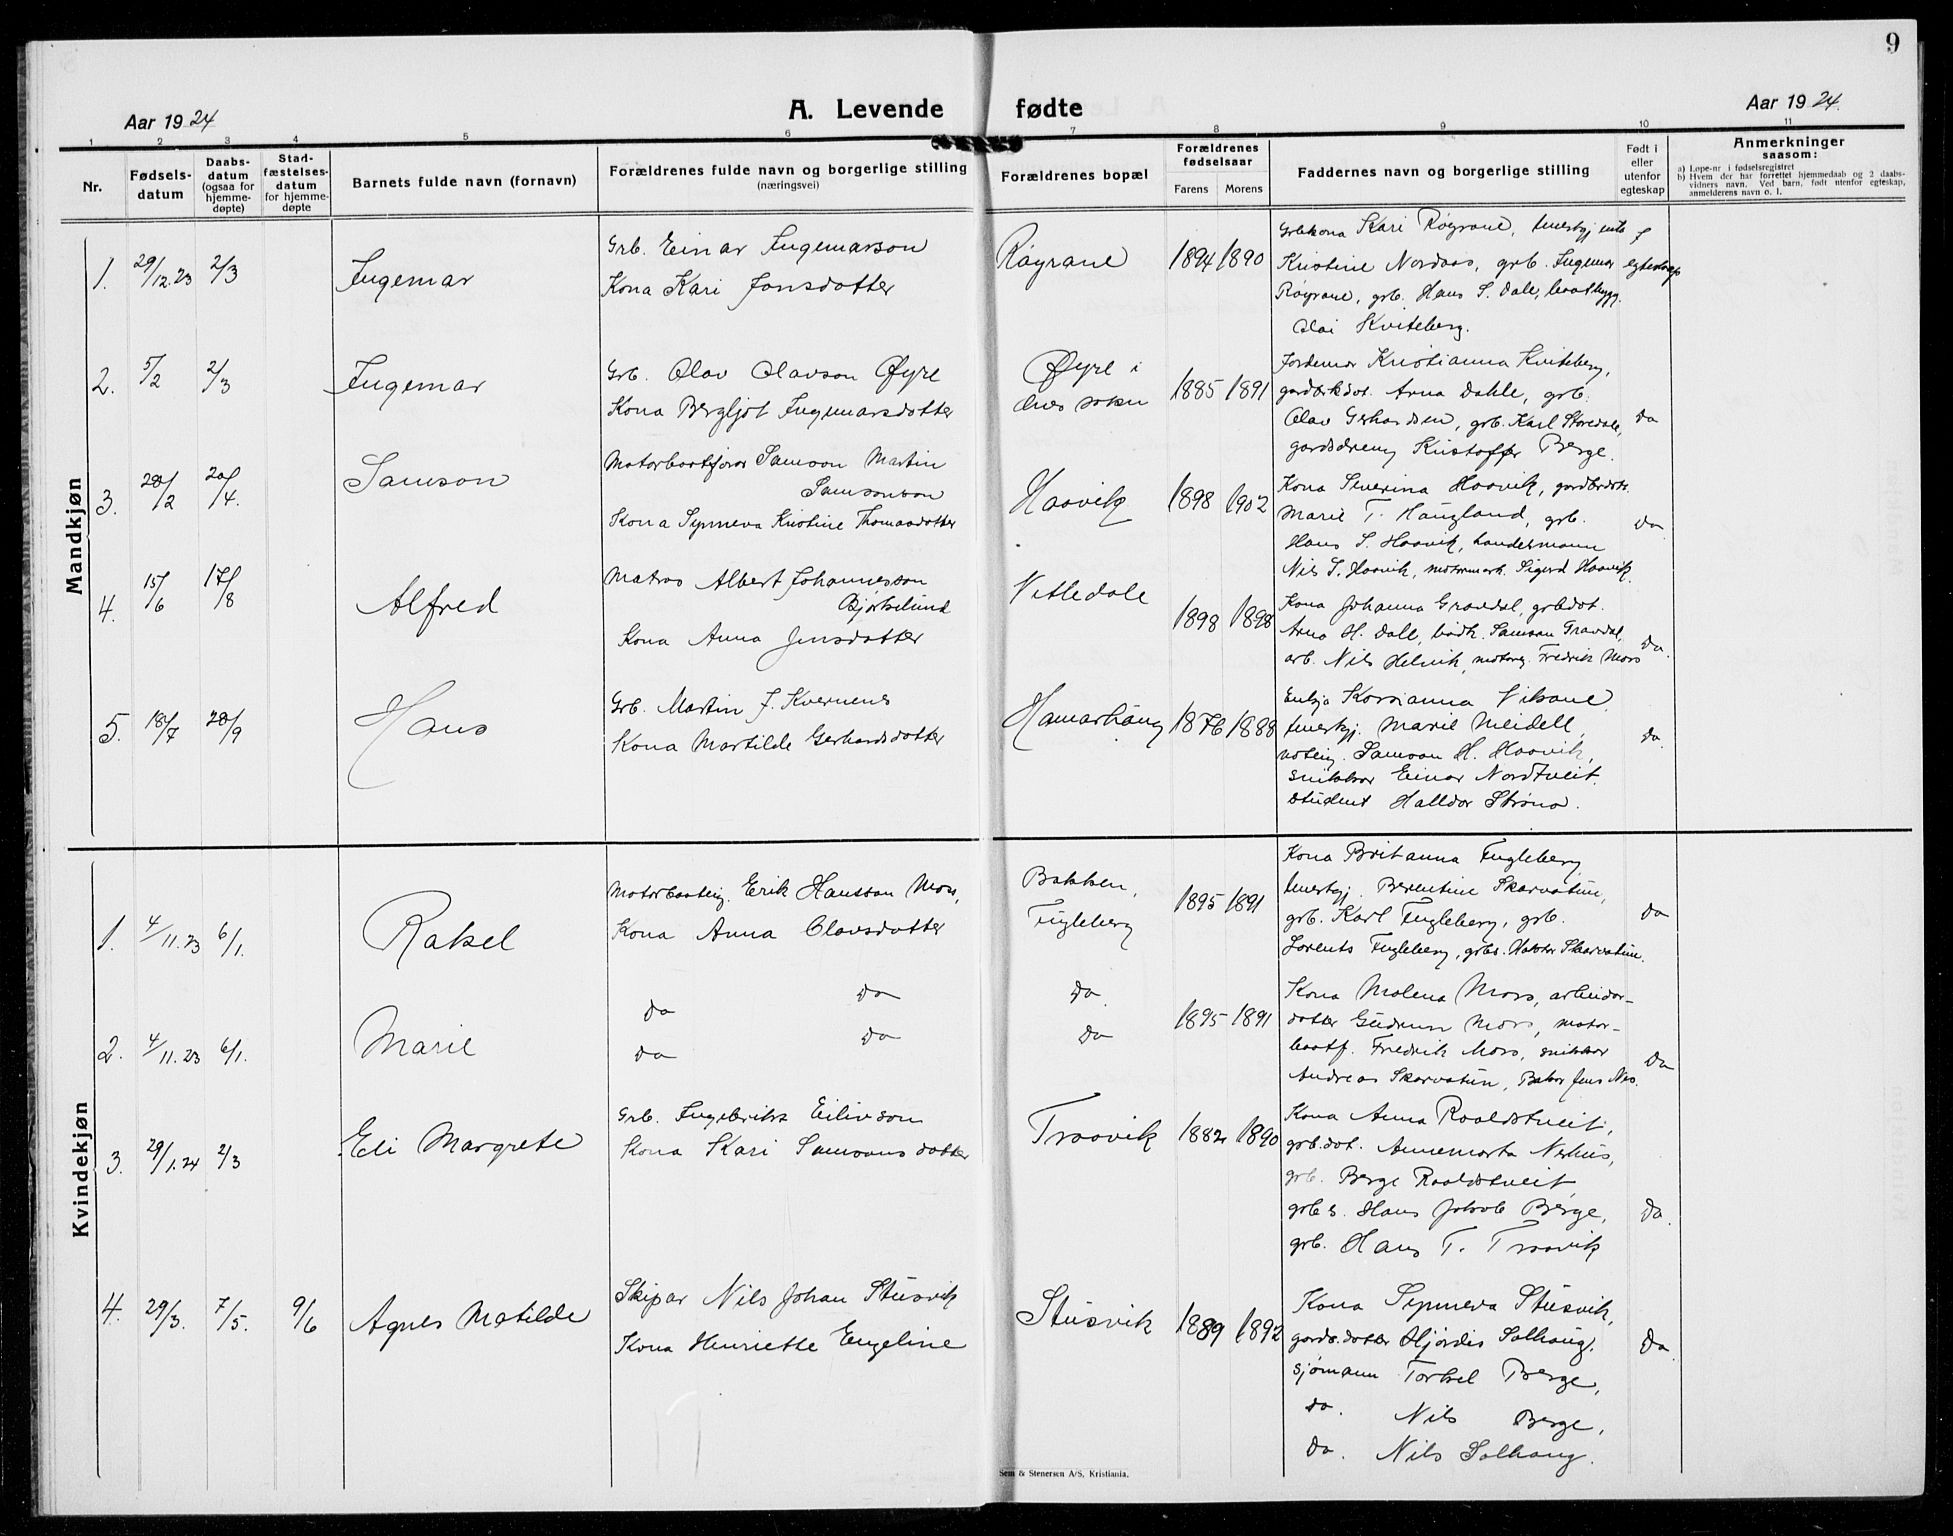 9
Aar 1924
A. Levende fødte
Aar 1924.
1 2 3 4 5 6 7 8 9 10 11
Nr.
Fødsels-datum
Daabs-datum (ogsaa for hjemme-døpte)
Stad-fæstelses-datum for hjemme-døpte
Barnets fulde navn (fornavn)
Forældrenes fulde navn og borgerlige stilling (næringsvei)
Forældrenes bopæl
Forældrenes fødselsaar
Farens Morens
Faddernes navn og borgerlige stilling
Født i eller utenfor egteskap
Anmerkninger saasom:
a) Løpe-nr i fødselsregistret
b) Hvem der har forrettet hjemmedaab og 2 daabs-
vidners navn. Ved barn, født utenfor egteskap,
anmelderens navn o. l.
Mandkjøn
1. 29/12.23 2/3 Ingemar
Grb. Einar Ingemarson
Kona Kari Jonsdotter
Røyrane 1894 1890
Grbkona Kari Røyrane,
Kristine Nordaas, grb. Ingemar
Røyrane, grb. Hans S. Dale, baatbygg.
Olai Kviteberg.
i egteskap
2. 5/2 2/3 Ingemar
Grb. Olav Olavson Øyre
Kona Bergljot Ingemarsdotter
Øyre i
sokn
1885 1891
Jordemor Kristianna Kviteberg,
Anna Dahle, grb.
Olav Gerhardsen, grb. Karl Storedale,
gardsdreng Kristoffer Berge.
Do
3. 28/2 20/4. Samson
Motorbaatførar Samson Martin
Samsonson
Kona Synneva Kristine Thomasdotter
Haavik 1898 1902
Kona Severina Haavik,
Marie T. Haugland, grb.
Hans S. Haavik, handelsmann
Nils S. Haavik, Sigurd Haavik.
Do
4. 15/6 17/8 Alfred
Matros Albert Johannesson
Bjørkelund
Kona Anna Jensdotter
Vetledale
1898 1898
Kona Johanna Gravdal, grbdot.
Anna H. Dale, Samson Gravdal,
arb. Nils Helvik, Fredrik Moss
Do.
5. 18/7 28/9 Hans
Grb. Martin J. Kvernenes
Kona Martilde Gerhardsdotter
Hamarhaug 1876 1888
Enkja
tenestgj. Marie Meidell,
noteig. Samson H. Haavik,
snikkar Einar Nordtveit.
student Halldor Strønø.
Do.
Kvindekjøn
1. 4/11.23 6/1. Rakel
Motorbaateig. Erik Hansson Moss,
Kona Anna Olavsdotter
Bakken,
Fugleberg
1895 1891
Kona Britanna Fugleberg
tenestgj. Berentine Skarvatun,
grb. Karl Fugleberg, grb.
Lorents Fugleberg, grbs. Skarvatun.
Do
2. 4/11.23 6/1. Marie
Do Do
Do Do
Do.
Do
1895 1891
Kona Malena Moss, arbeidar-
dotter Gudrun Moss, motor-
baatf. Fredrik Moss, snikkar
Andreas Skarvatun, Bakar Jens Nes.
Do
3. 29/1.24 2/3 Eli Margrete
Grb. Ingebrikt Eilivson
Kona Kari Samsonsdotter
Traavik 1882 1890
Kona Anna Raaldstveit,
grb.dot. Annemarta Nerhus,
grb. Berge Raaldstveit,
grb s. Hans Jakob Berge,
grb. Hans T. Traavik
Do.
4. 29/3. 7/5. 9/6 Agnes Matilde
Skipar Nils Johan Stusvik
Kona Henriette Engeline
Stusvik 1889 1892
Kona Synneva Stusvik,
gards.dotter Hjørdis Solhaug,
sjømann Torkel Berge,
do. Nils Berge,
Do. Nils Solhaug.
Do
Sem & Stenersen A/S, Kristiania.